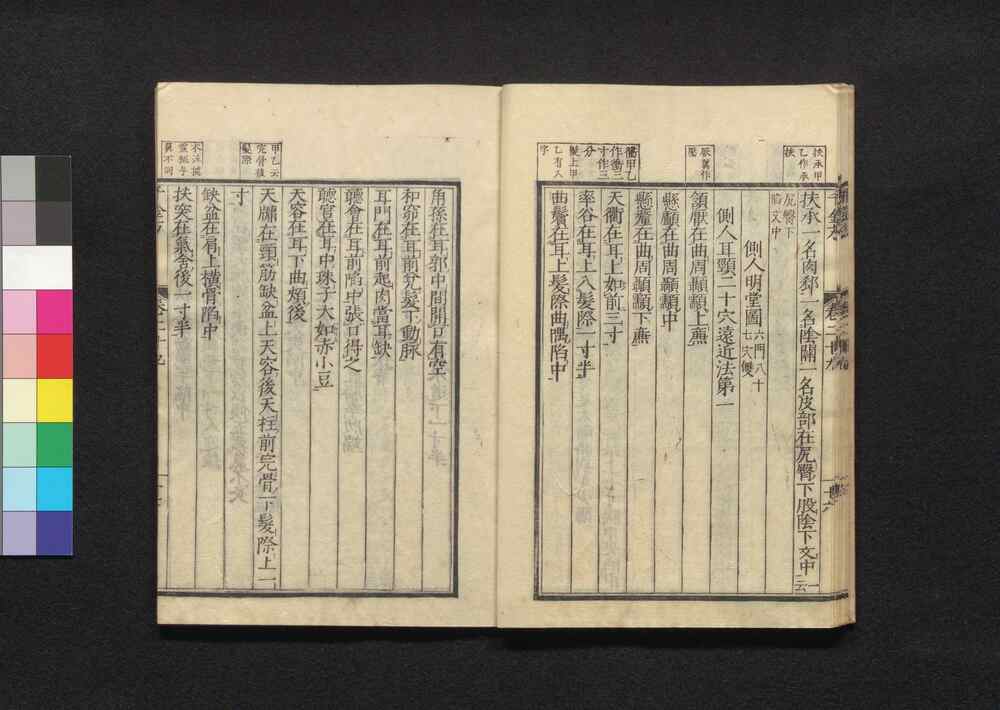 扶承甲
乙作承
扶
脈翼作
甲乙
作
寸作三
分
髮上甲
乙有入
字
扶承一名肉郄一名陰關一名皮部在尻臀下股陰下文中一云
尻臀下
文中
側人明堂圖六門八十七穴雙
側人耳頸二十穴遠近法第一
頷厭在曲周顳顬上廉
懸顱在曲周顳顬中
懸釐在曲周顳顬下廉
天衝在耳上如前三寸
率谷在耳上入髮際一寸半
曲鬢在耳上髮際曲隅陷中
甲乙云
完骨後
髮際
角孫在耳郭中間開口有空
和窌在耳前兌髮下動脈
耳門在耳前起肉當耳缺
聽會在耳前陷中張口得之
聽宮在耳中珠子大如赤小豆
天容在耳下曲頰後
天牖在頸筋缺盆上天容後天柱前完骨下髮際上一
寸
缺盆在肩上橫骨陷中
扶突在氣舍後一寸半